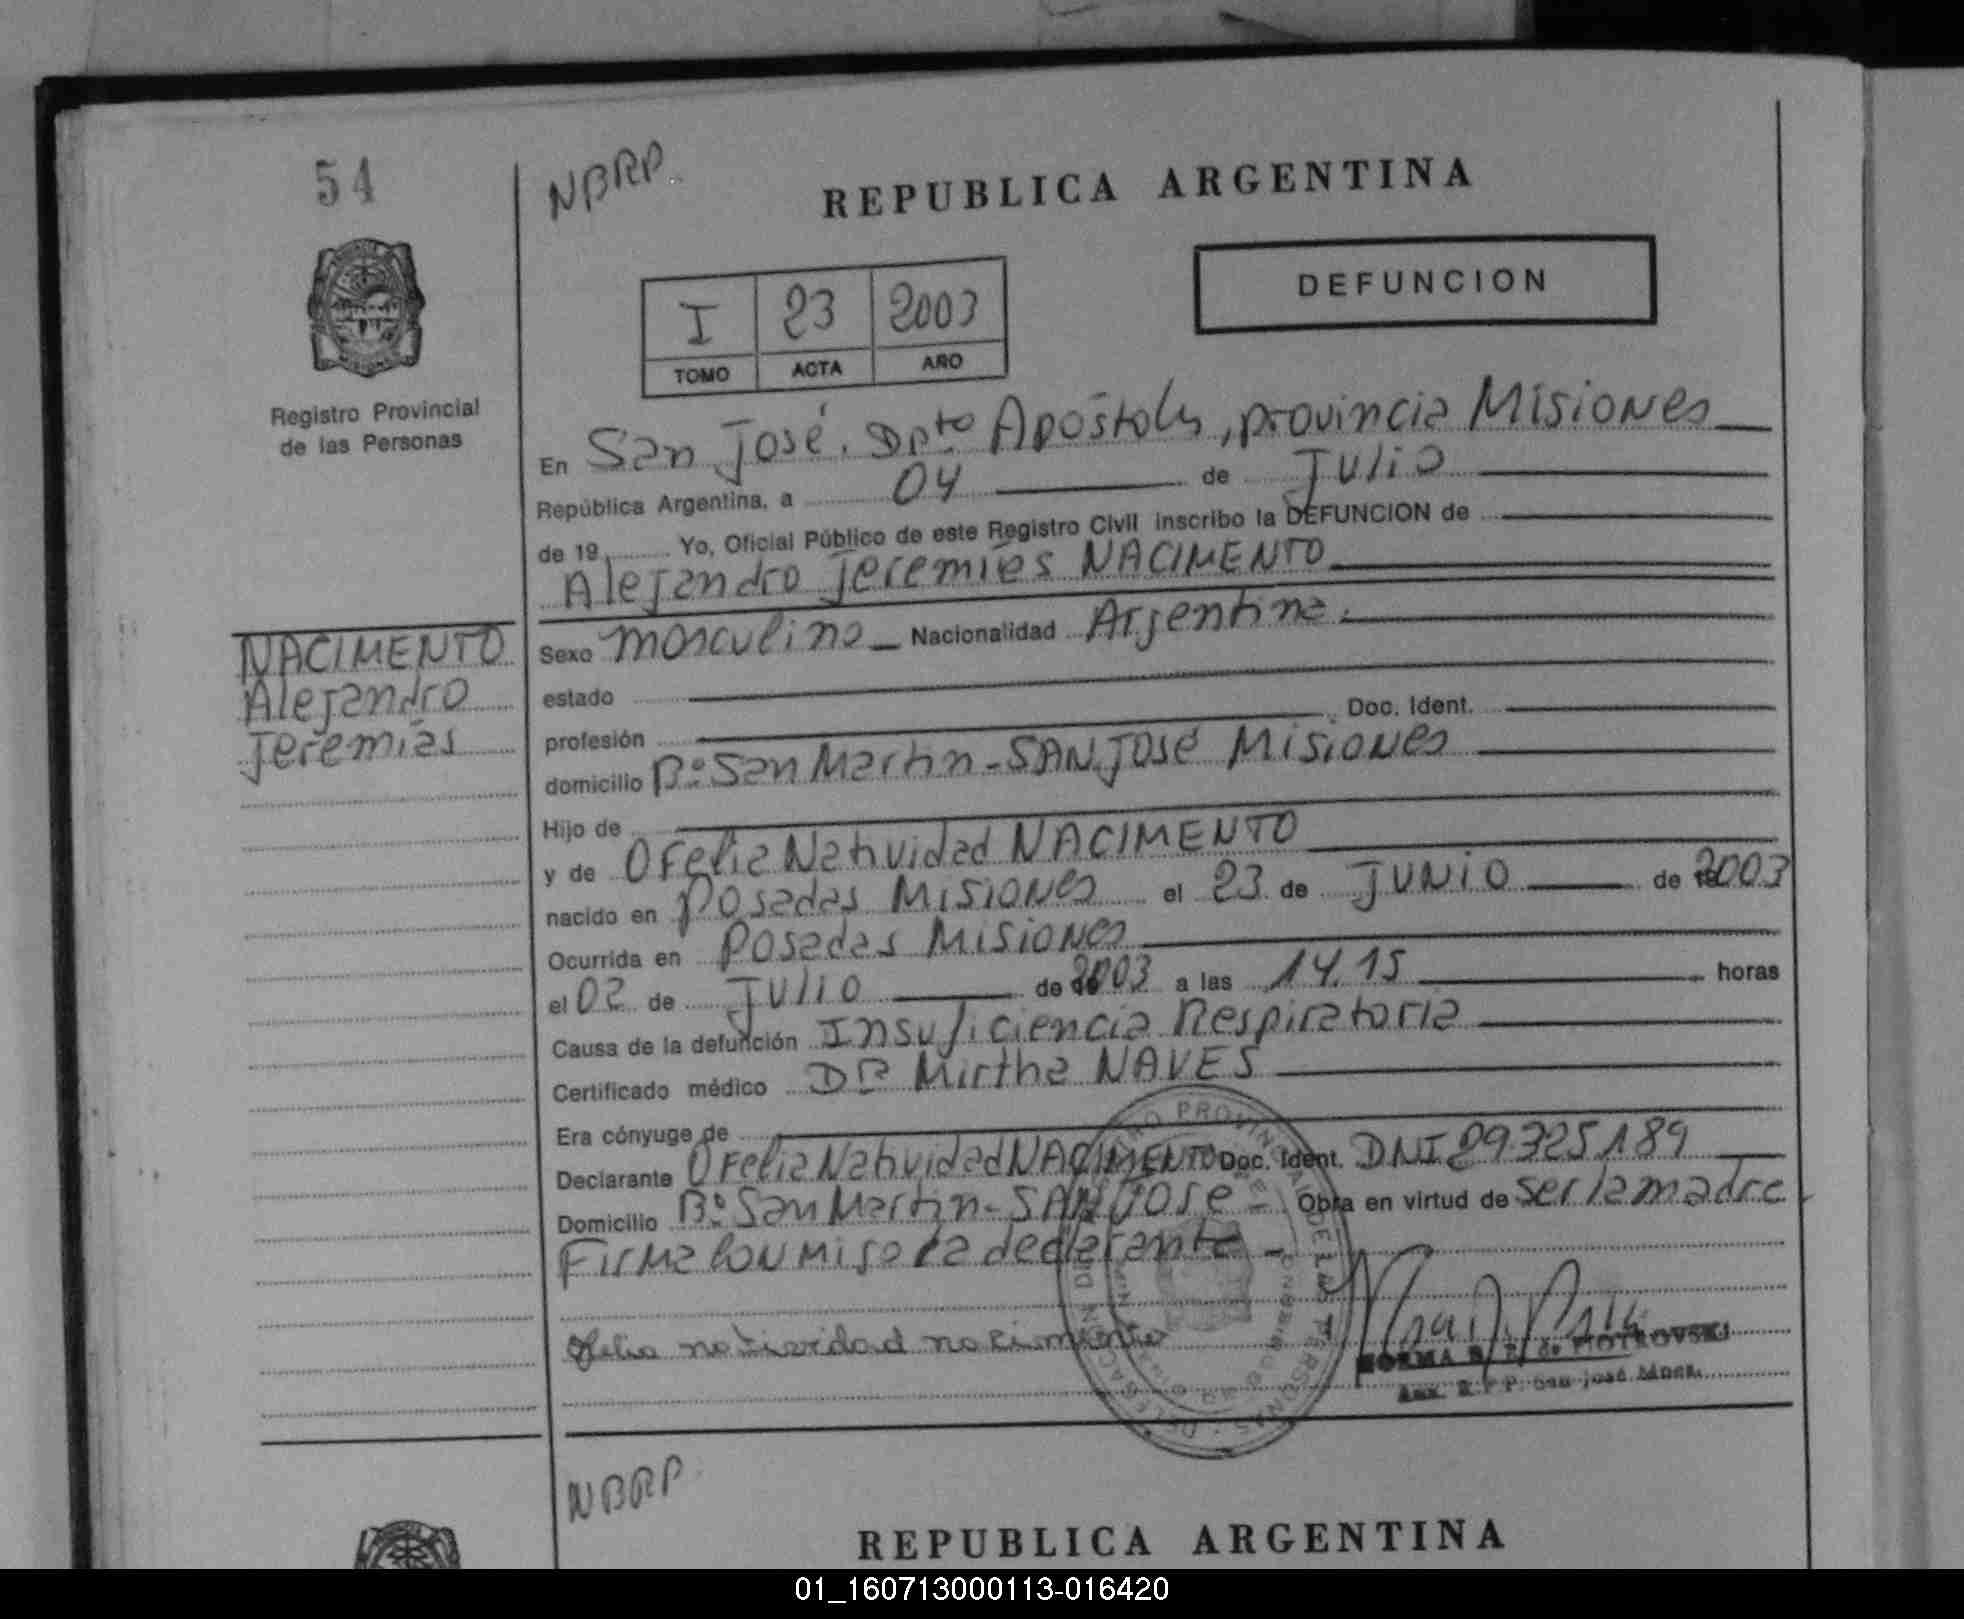 54
NBRP.
REPUBLICA ARGENTINA
DEFUNCION
I 23 2003
TOMO ACTA AÑO
Registro Provincial
de las Personas
En San José. Dpto Apóstoles, provincia Misiones
República Argentina, a 04 de Julio
de 19 Yo, Oficial Público de este Registro Civil inscribo la DEFUNCION de
Alejandro Jeremías NACIMENTO
NACIMENTO
Alejandro
Jeremías
Sexo masculino Nacionalidad Argentina.
estado
profesión Doc. Ident.
domicilio Bº San Martin - SAN JOSÉ Misiones
Hijo de
y de Ofelia Natividad NACIMENTO
nacido en Posadas Misiones el 23 de JUNIO de 2003
Ocurrida en Posadas Misiones
el 02 de JULIO de 2003 a las 14.15 horas
Causa de la defunción Insuficiencia Respiratoria
Certificado médico Dra Mirtha NAVES
Era cónyuge de
Declarante Ofelia Natividad NACIMENTO Doc. Ident. DNI 29325189
Domicilio Bº San Martin - SAN JOSE Obra en virtud de ser la madre
Firma con migo la declarante -
Ofelia natividad nacimento
NORMA B. de PIOTROVSKI
Aux. R.P.P. San José Mnes.
NBRP.
REPUBLICA ARGENTINA
01_160713000113-016420